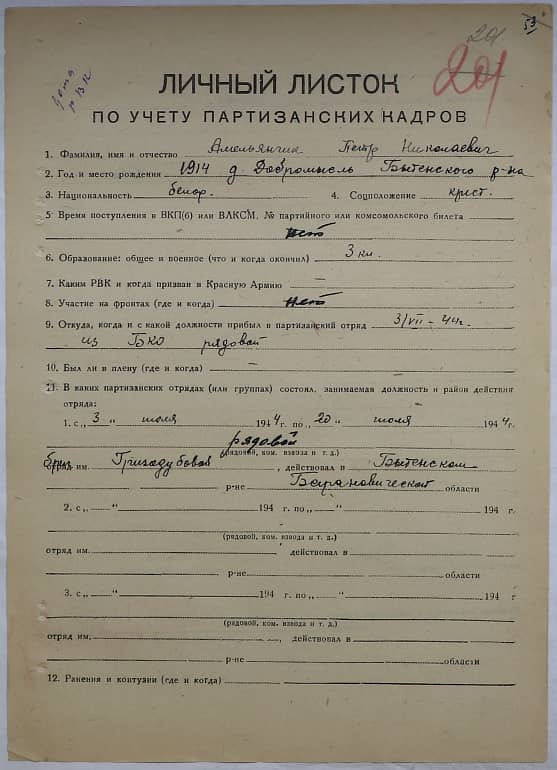 53
201
201
дота
ЛИЧНЫЙ ЛИСТОК
ПО УЧЕТУ ПАРТИЗАНСКИХ КАДРОВ
1. Фамилия, имя и отчество Амельянчик Петр Николаевич
2. Год и место рождения 1914 д. Добромысль Бытенского р-на
3. Национальность белор. 4. Соцположение крест.
5. Время поступления в ВКП(б) или ВЛКСМ, № партийного или комсомольского билета
нет
6. Образование: общее и военное (что и когда окончил) 3 кл.
7. Каким РВК и когда призван в Красную Армию —
8. Участие на фронтах (где и когда) нет
9. Откуда, когда и с какой должности прибыл в партизанский отряд 3/VII-44г.
из БКО рядовой
10. Был ли в плену (где и когда) —
11. В каких партизанских отрядах (или группах) состоял, занимаемая должность и район действия
отряда:
1. с „ 3 " июля 1944 г. по „ 20 " июля 1944 г.
рядовой
(рядовой, ком. взвода и т. д.)
бриг. отряд им. Гризодубовой, действовал в Бытенском
р-не Барановической области
2. с „ " 194 г. по „ " 194 г.
(рядовой, ком. взвода и т. д.)
отряд им. действовал в
р-не области
3. с „ " 194 г. по „ " 194 г
(рядовой, ком. взвода и т. д.)
отряд им. , действовал в
р-не области
12. Ранения и контузии (где и когда)